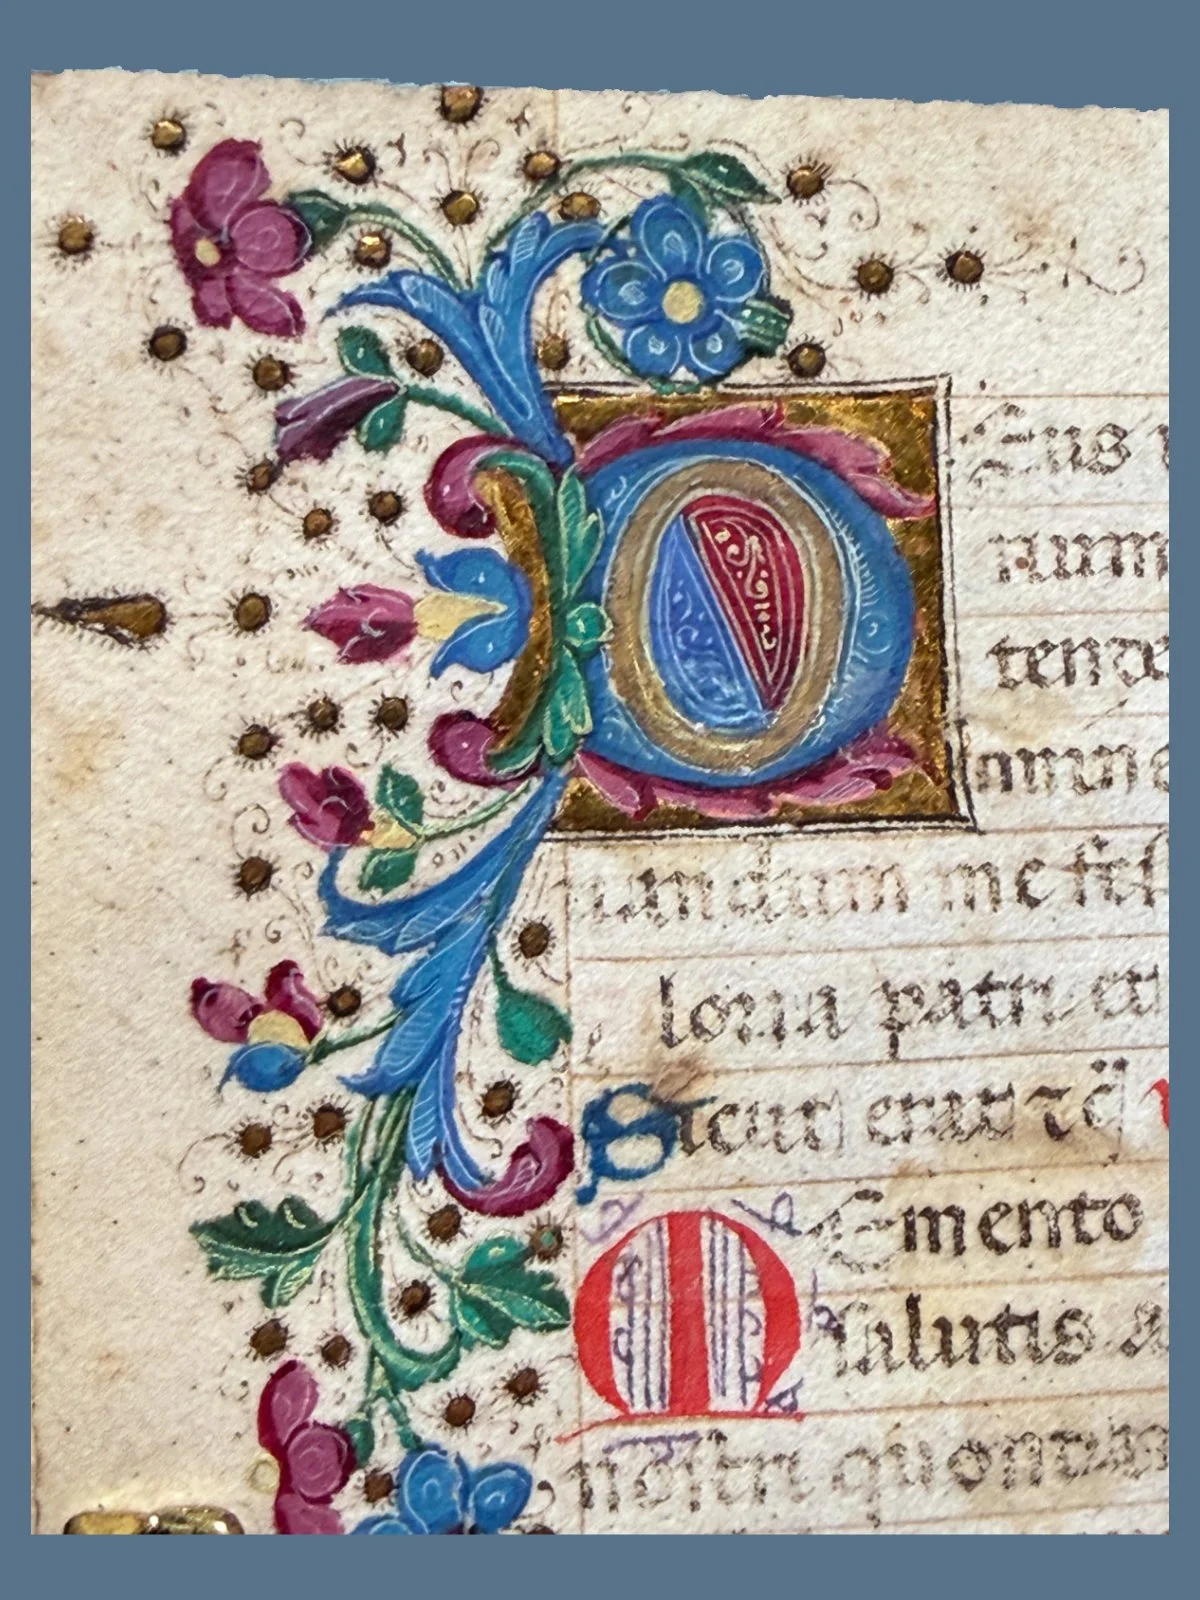 D Eus i
num
tende
mine
um dum me fes
loria patri et
Sicut erat ⁊ c̄
M Emento
salutis a
nostri quondam